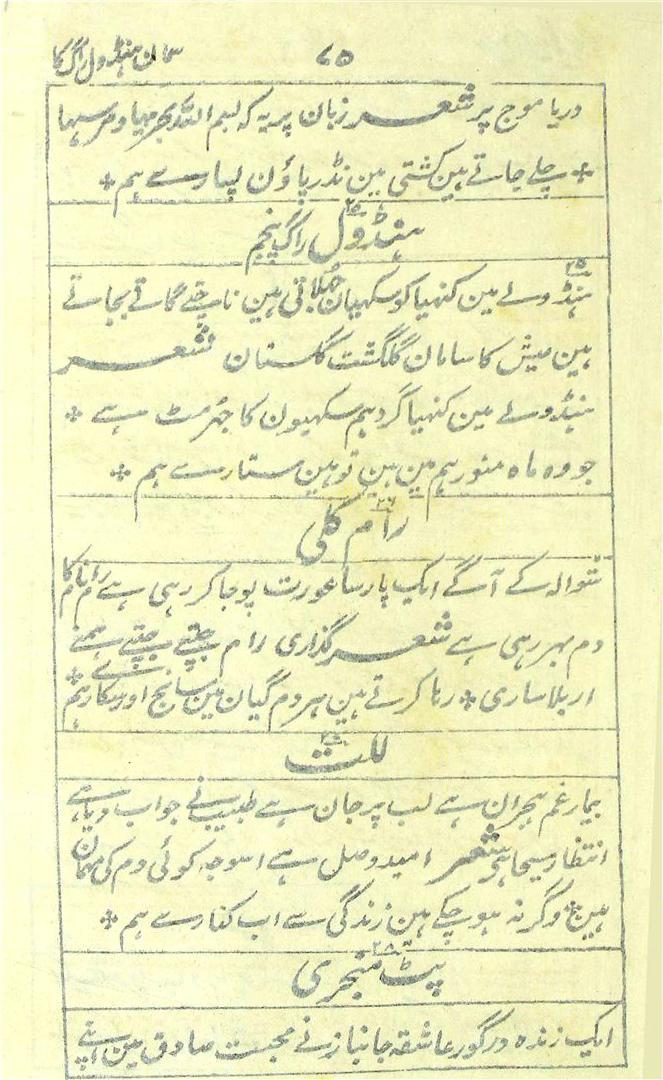 ۷۵ سمان ہنڈول راگ کا
دریا موج پر شعر زبان پر یہ کہ بسم اللہ مجریہا و مرسہا
* چلے جاتے ہین کشتی مین نڈر پاؤن پسارے ہم *
ہنڈول راگ پنجم
۲۵
ہنڈولے مین کنہیا کو سکہیان جہلاتی ہین ناچتے گاتے بجاتے
ہین عیش کا سامان گلگشت گلستان شعر
ہنڈولے مین کنہیا گرد ہم سکہیون کا جہرمٹ ہے *
جو وہ ماہ منور ہم مین ہین تو ہین ستارے ہم *
رام کلی
۲۶
شوالہ کے آگے ایک پارسا عورت پوجا کر رہی ہے رام نام کا
دم بہر رہی ہے شعر گذاری رام جپتے جپتے ہمنے
اربلا ساری * رہا کرتے ہین ہر دم گیان مین سانج اور سکارے ہم *
للت
بیمار غم ہجران ہے لب پر جان ہے طبیب نے جواب دیا ہے
انتظار مسیحا ہی شعر امید وصل ہے اسوجہ کوئی دم کی مہمان
ہین * وگرنہ ہو چکے ہین زندگی سے اب کنارے ہم *
پٹ منجری
۲۸
ایک زندہ درگور عاشقہ جانباز نے محبت صادق مین اپنے